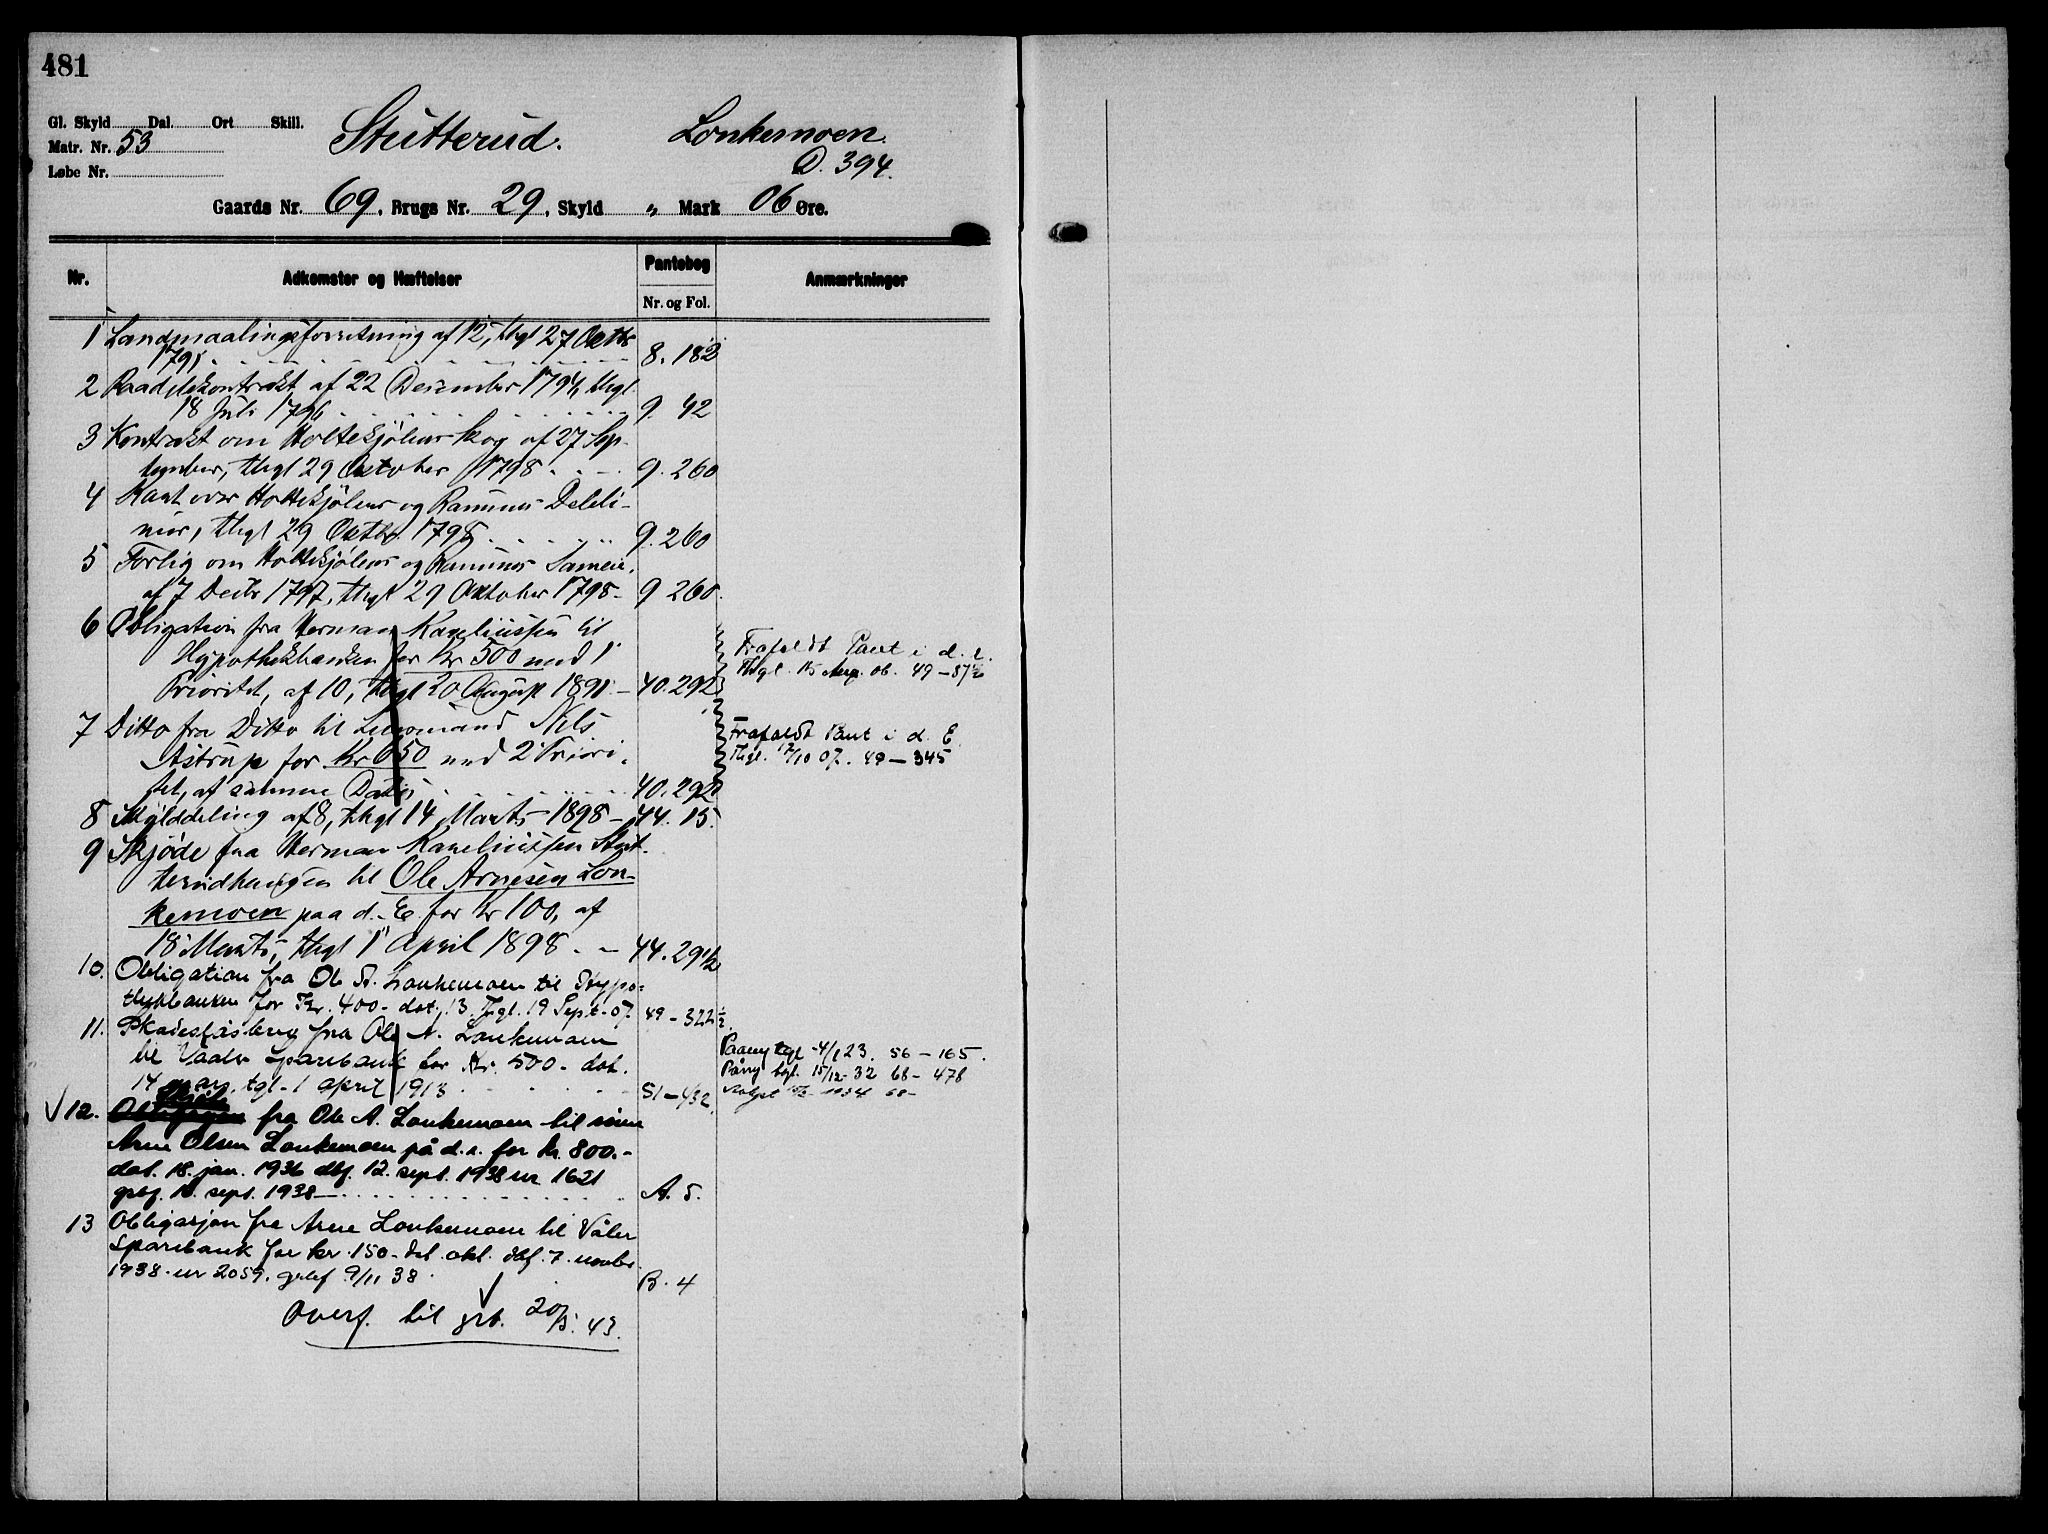 481
Gl. Skyld Dal. Ort Skill.
Matr. Nr. 53
Løbe Nr.
Stutterud. Lonkemoen.
D. 394.
Gaards Nr. 69, Brugs Nr. 29, Skyld " Mark 06 Øre.
Nr. Adkomster og Hæftelser Pantebog Anmærkninger
Nr. og Fol.
1 Landmaalingsforretning af 12, thgl 27 Oktbr
1791. 8. 182
2 Raadelskontrakt af 22 Desember 1794, thgl.
18 Juli 1796 9. 42
3 Kontrakt om Holtekjølens Skog af 27 Sep-
tember, thgl 29 Oktober 1798 9. 260
4 Kart over Holtekjølens og Ramnus Deleli-
nier, thgl 29 Oktbr 1798 9. 260
5 Forlig om Holtekjølens og Ramnus Sameie,
af 7 Decbr 1797, thgl 29 Oktober 1798 - 9 260.
6 Obligation fra Herman Kareliussen til
Hypothekbanken for Kr 500 med 1'
Prioritet, af 10, thgl 20 August 1891 - 40. 292
Frafaldt Pant i d. e.
Thgl. 15 Aug. 06. 49 - 37½
7 Ditto fra Ditto til Lensmand Nils
Astrup for Kr 650 med 2' Priori-
tet, af samme Dato 40. 292
Frafaldt Pant i d. E
Thgl. 17/10 07. 49 - 345
8 Skylddeling af 8, thgl 14 Marts 1898 - 44. 15.
9 Skjøde fra Herman Kareliussen Stut-
terudhaugen til Ole Arnesen Lon-
kemoen paa d. E. for Kr 100, af
18 Marts, thgl 1' April 1898. - 44. 29½
10. Obligation fra Ole A. Lonkemoen til Hypo-
thekbanken for Kr. 400 - dat. 13. Thgl. 19 Sept. 07. 49 - 322½.
11. Skadesløsbrev fra Ole A. Lonkemoen
til Vaaler Sparebank for Kr. 500 - dat.
14 mars, tgl - 1 april 1913 51 - 432.
Paany tgl - 4/1 23. 56 - 165.
Påny tgl. 15/12 - 32 68 - 478
12. Skjøte fra Ole A. Lonkemoen til sønn
Arne Olsen Lonkemoen på d. e. for kr. 800.-
dat. 18. jan. 1936 dbf. 12. sept. 1938 nr 1621
grbf. 12. sept. 1938 - A. 5.
13 Obligasjon fra Arne Lonkemoen til Våler
Sparebank for kr. 150 - dat. okt. dbf. 7. novbr.
1938 - nr 2059. grbf 9/11 38 B. 4
Overf. til grb. 20/5. 43.